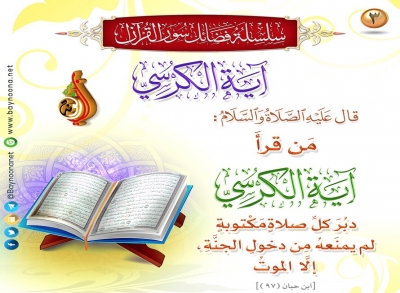 ٣
سلسلة فضائل سور القرآن
آية الكرسي
قال عَلَيْهِ الصَّلَاةُ وَالسَّلَامُ:
مَن قرأَ
آية الكرسي
دبُرَ كلِّ صلاةٍ مَكْتوبةٍ
لم يمنَعهُ مِن دخولِ الجنَّةِ،
إلَّا الموتُ
[ابن حبان (٩٧)]
www.baynoona.net
@Baynoonanet